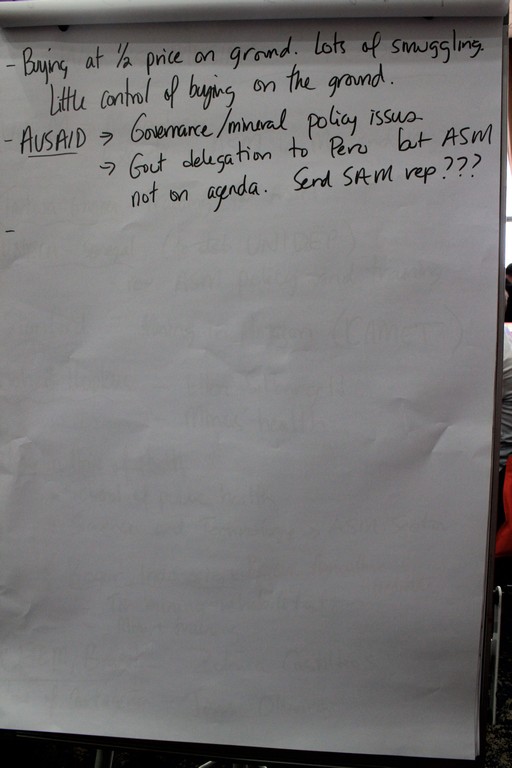 - Buying at 1/2 price on ground. Lots of smuggling.
Little control of buying on the ground.
- AUSAID → Governance/mineral policy issus
→ Gout delegation to Peru but ASM
not on agenda. Send SAM rep???
-